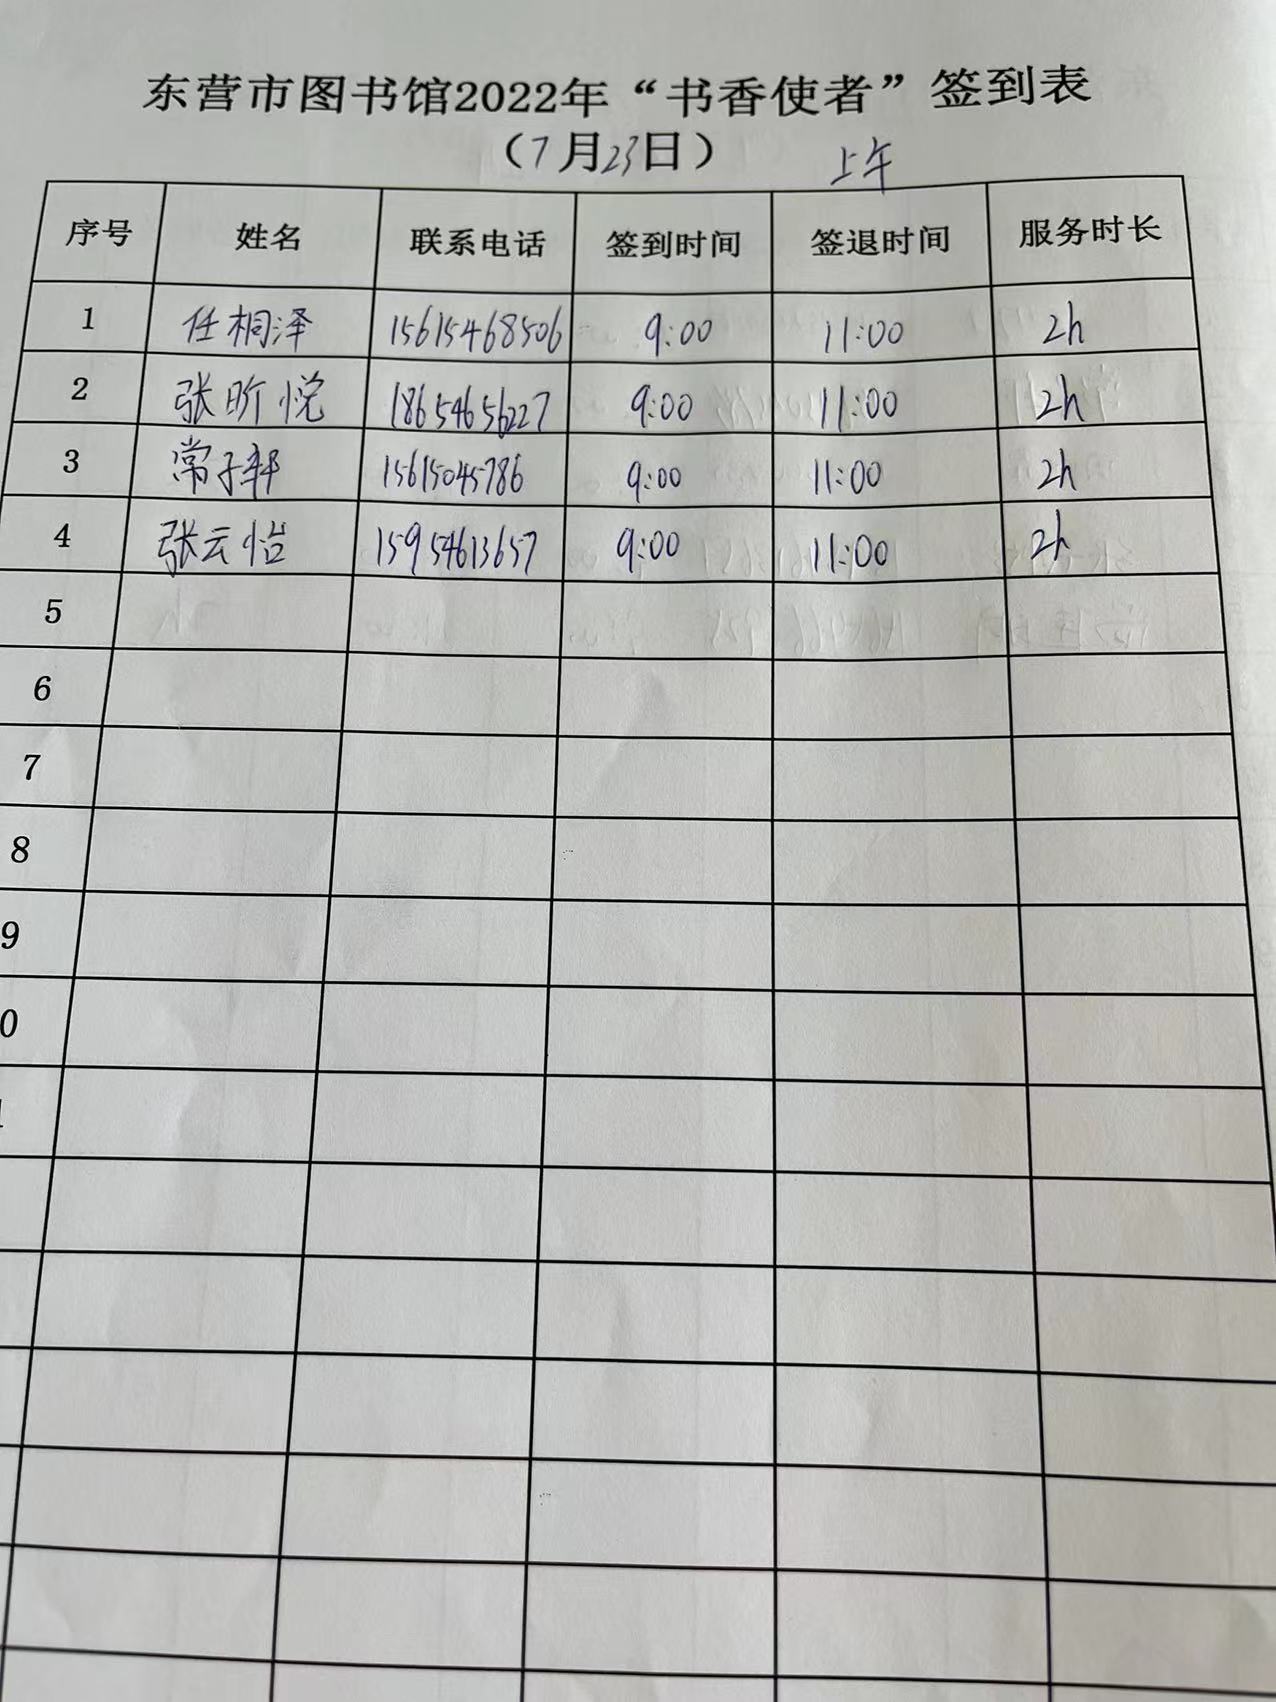 东营市图书馆2022年“书香使者”签到表
（7月23日） 上午
序号 姓名 联系电话 签到时间 签退时间 服务时长
1 任桐泽 15615468506 9:00 11:00 2h
2 张昕悦 18654656227 9:00 11:00 2h
3 常子 15615045786 9:00 11:00 2h
4 张云怡 15954613657 9:00 11:00 2h
5
6
7
8
9
0